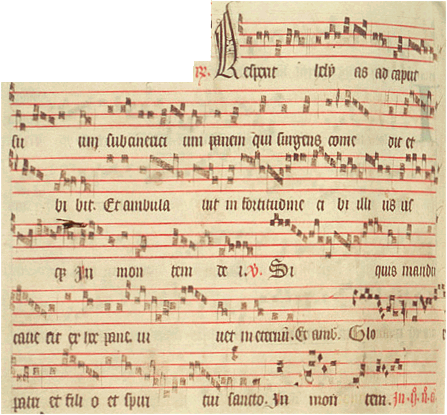 R. Respexit hely as ad caput
su um subcinerici um panem qui surgens come dit et
bi bit. Et ambula uit in fortitudine ci bi illi us us
q3 In mon tem de i. v. Si quis mandu
cauerit ex hoc pane. ui uet in eternū. Et amb. Glo
patri et fili o et spiri tui sancto. In mon tem.